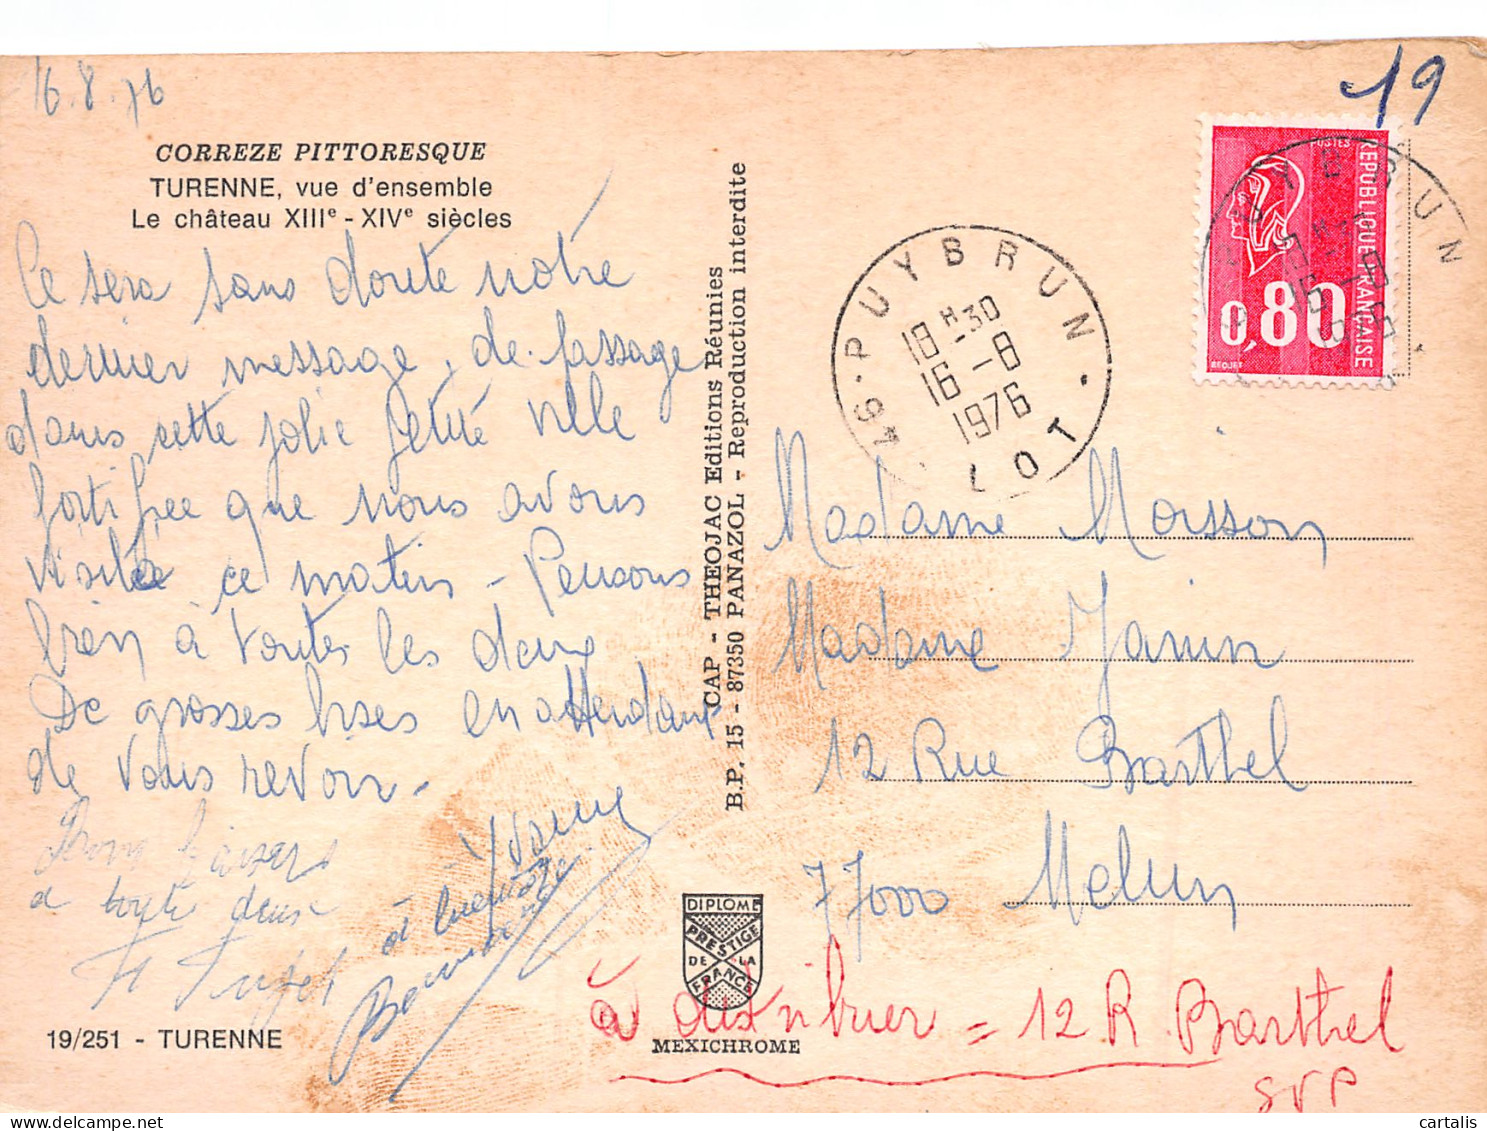 16.8.76
19
CORREZE PITTORESQUE
TURENNE, vue d'ensemble
Le château XIIIe - XIVe siècles
Ce sera sans doute notre
dernier message, de passage
dans cette jolie petite ville
fortifiée que nous avons
visitée ce matin - Pensons
bien à toutes les deux
De grosses bises en attendant
de vous revoir -
Bons baisers
a toute deux
à
CAP - THEOJAC Editions Réunies
B.P. 15 - 87350 PANAZOL - Reproduction interdite
46 - PUYBRUN
18H30
16-8
1976
LOT
PUYBRUN
16-8
POSTES
REPUBLIQUE FRANÇAISE
0,80
BEQUET
Madame Moisson
Madame Janin
12 Rue Barthel
77000 Melun
DIPLOME
PRESTIGE
DE LA
FRANCE
à distribuer = 12 R. Barthel
SVP
MEXICHROME
19/251 - TURENNE
cartalis